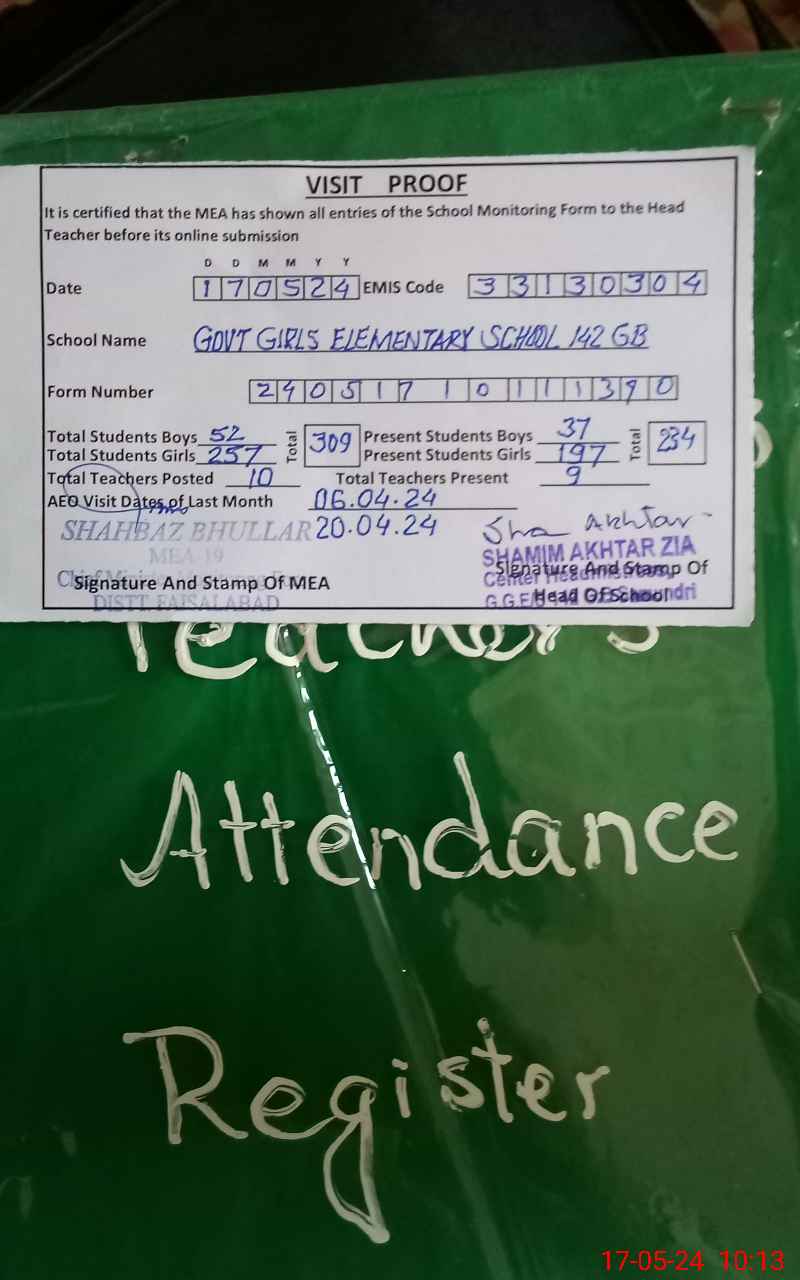 VISIT PROOF
It is certified that the MEA has shown all entries of the School Monitoring Form to the Head
Teacher before its online submission
D D M M Y Y
Date 170524 EMIS Code 33130304
School Name GOVT GIRLS ELEMENTARY SCHOOL 142 GB
Form Number 240517 10111390
Total Students Boys 52 Total 309 Present Students Boys 37 Total 234
Total Students Girls 257 Present Students Girls 197
Total Teachers Posted 10 Total Teachers Present 9
AEO Visit Dates of Last Month 06.04.24
SHAHBAZ BHULLAR 20.04.24 Sha Akhtar
MEA-19 SHAMIM AKHTAR ZIA
Signature And Stamp Of MEA Signature And Stamp Of
Center Head
DISTT. FAISALABAD Head Of School
G.G.E/S 142 G.B
Teacher's
Attendance
Register
17-05-24 10:13